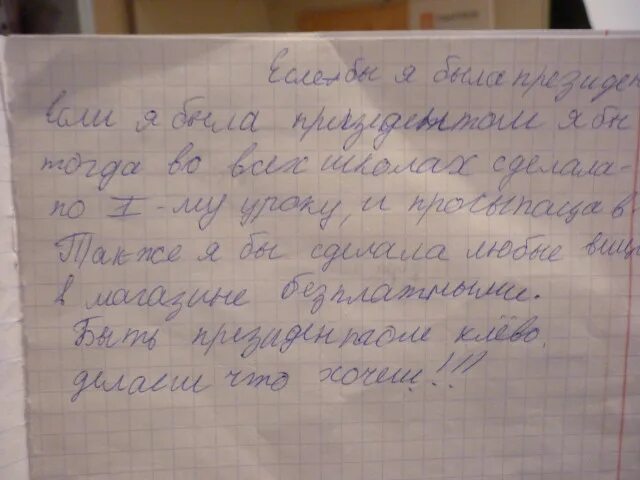 Если бы я была президен
Если я была президентом я бы
тогда во всех школах сделала
по I-му уроку, и просыпаца в
Также я бы сделала любые вищ
в магазине безплатными.
Быть президентом клёво,
делаеш что хочеш!!!